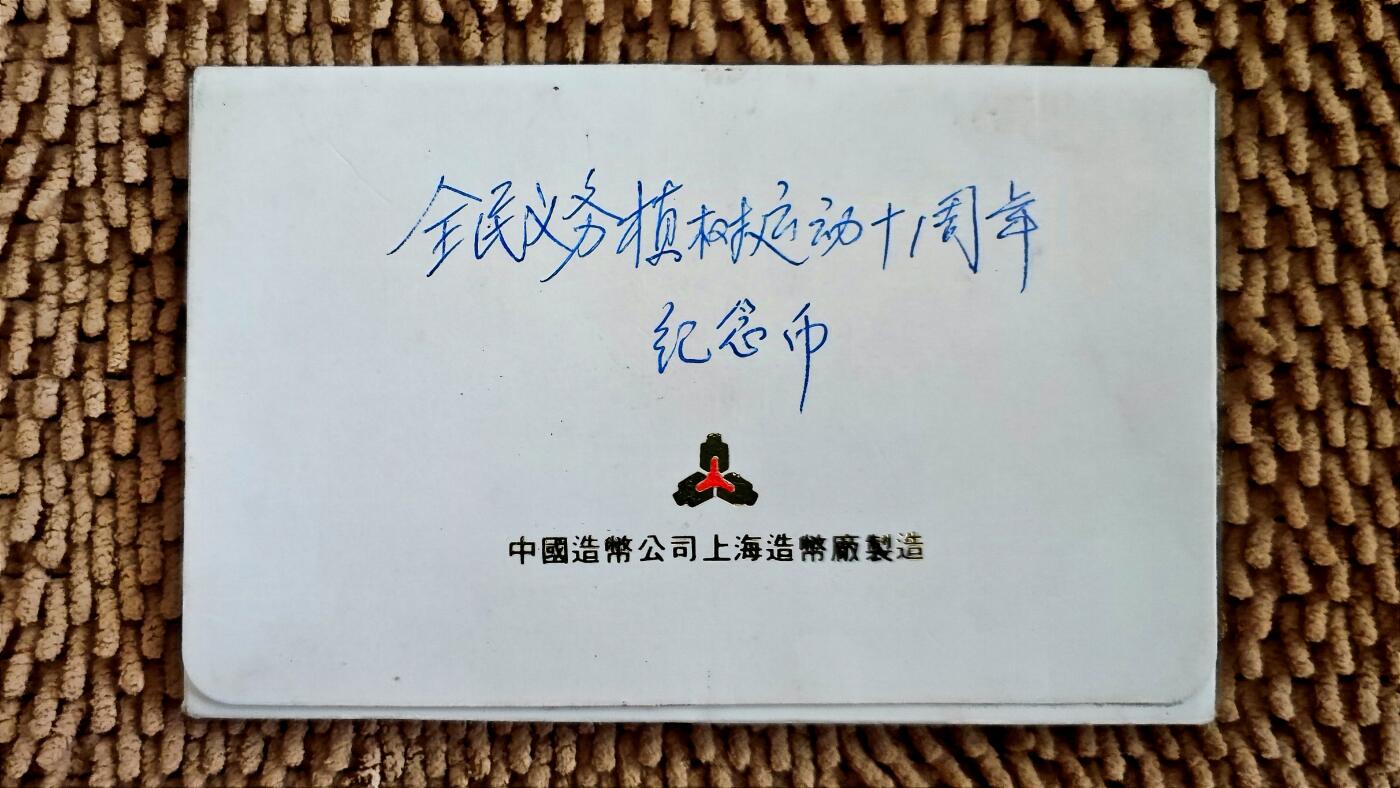 全民义务植树运动十周年
纪念币
中國造幣公司上海造幣廠製造